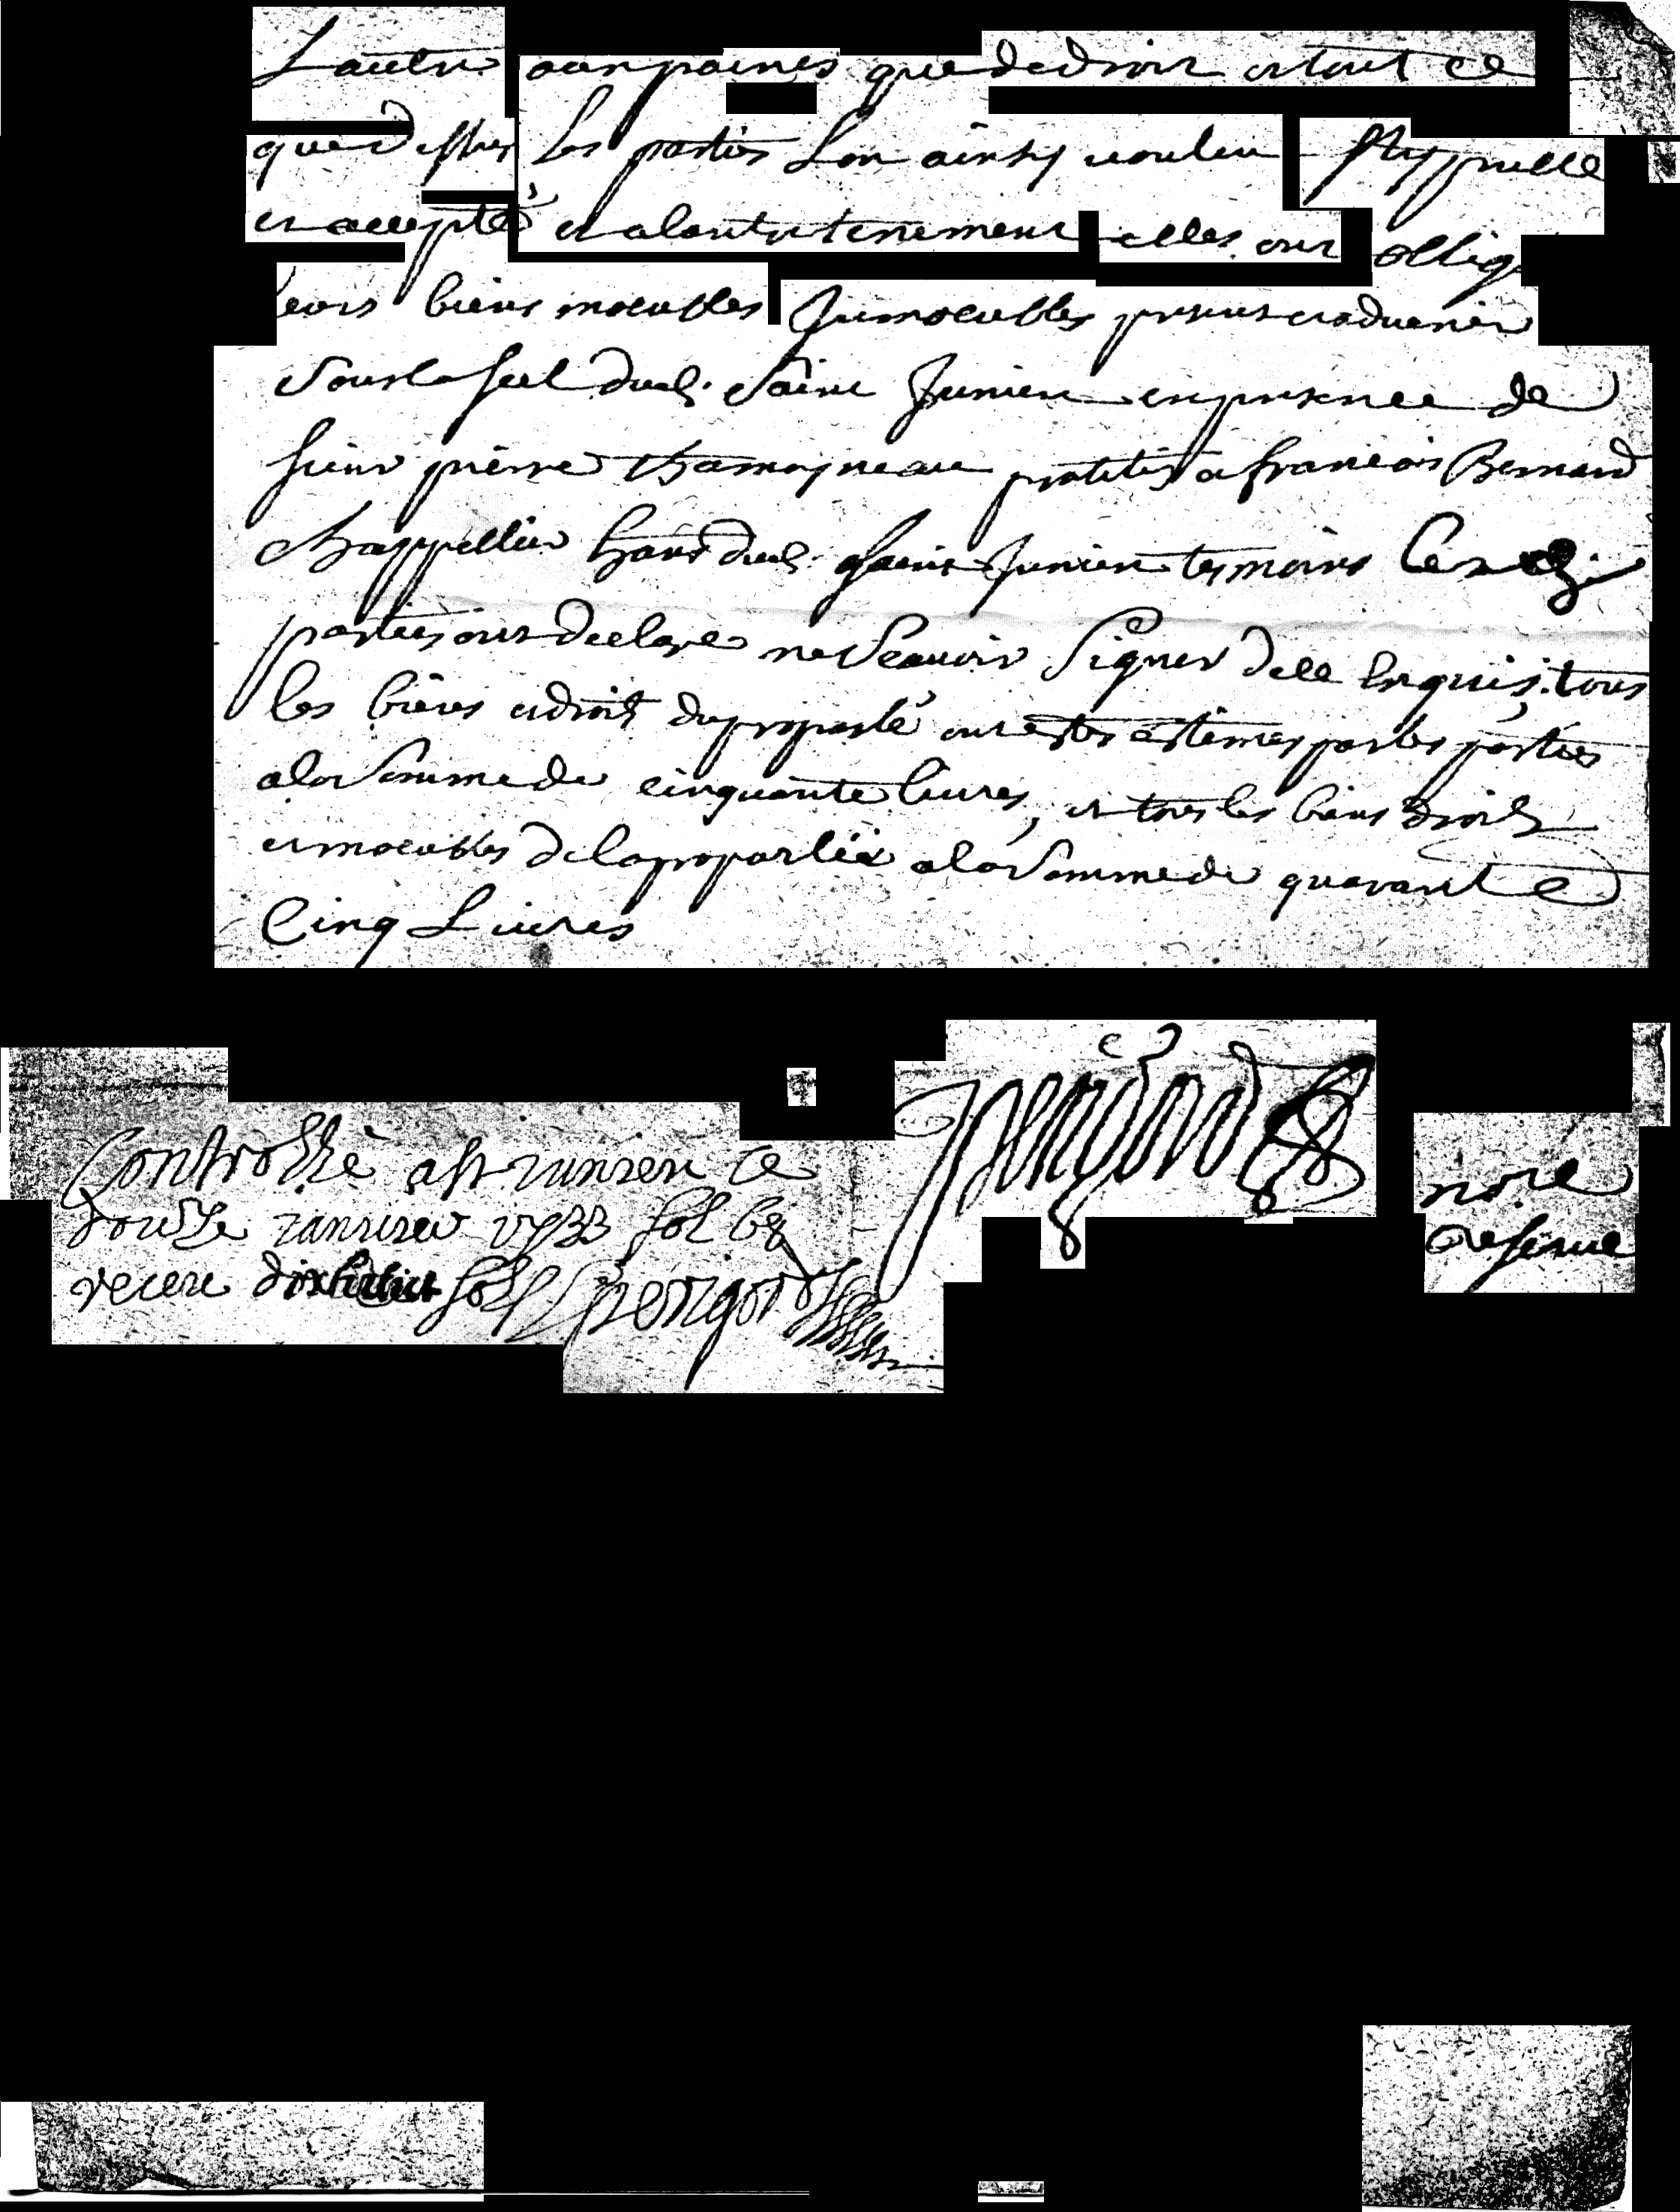 Lautre aux paines que de droit et tout ce
que dessus les parties Lon ainsy voulu stippulle
et accepté et a lentretenement elles ont obligé
leurs biens moeubles Jmmoeubles presens et aduenir
Sous le seel dud. Saint Junien en presence de
sieur pierre Chamoyneau praticien et francois Bernard
Chappellier hans dud. Saint Junien tesmoins Lesd.
parties ont declare ne Scauoir Signer de ce Enquis, tous
les biens et droits du proparlé ont estes estimes par les parties
a la Somme de cinquante liures, et tous les biens droits
et moeubles de la proparlée a la Somme de quarante
Cinq Liures
Controllé a St Junien ce
douze Januier 1733 fol 68
receu dix huit sols
nore
Reserue